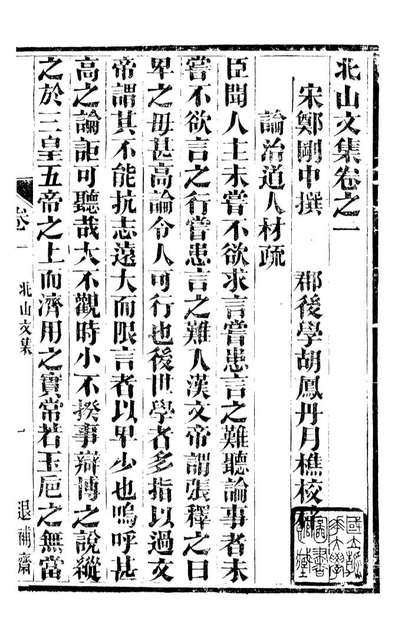 北山文集卷之一
宋鄭剛中撰　郡後學胡鳳丹月樵校梓
論治道人材疏
臣聞人主未嘗不欲求言嘗患言之難聽論事者未
嘗不欲言之行嘗患言之難人漢文帝謂張釋之曰
卑之毋甚高論令人可行也後世學者多指以過文
帝謂其不能抗志遠大而限言者以卑少也嗚呼甚
高之論詎可聽哉大不觀時小不揆事辯博之說縱
之於三皇五帝之上而濟用之實常若玉巵之無當
卷一　北山文集　一　退補齋